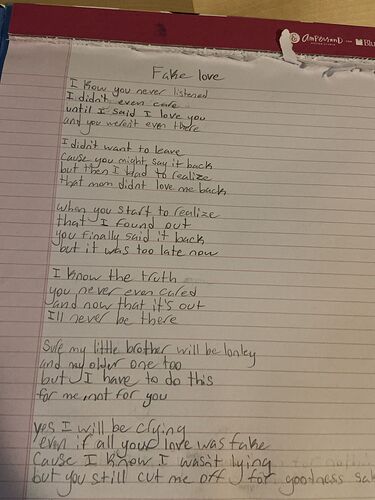 ampersand
Blu
Fake love
I know you never listened
I didn't even care
until I said I love you
and you weren't even there
I didn't want to leave
cause you might say it back
but then I had to realize
that mom didnt love me back
when you start to realize
that I found out
you finally said it back
but it was too late now
I know the truth
you never even cared
and now that it's out
I'll never be there
Sure my little brother will be lonley
and my older one too
but I have to do this
for me, not for you
yes I will be crying
even if all your love was fake
Cause I know I wasn't lying
but you still cut me off for goodness sak